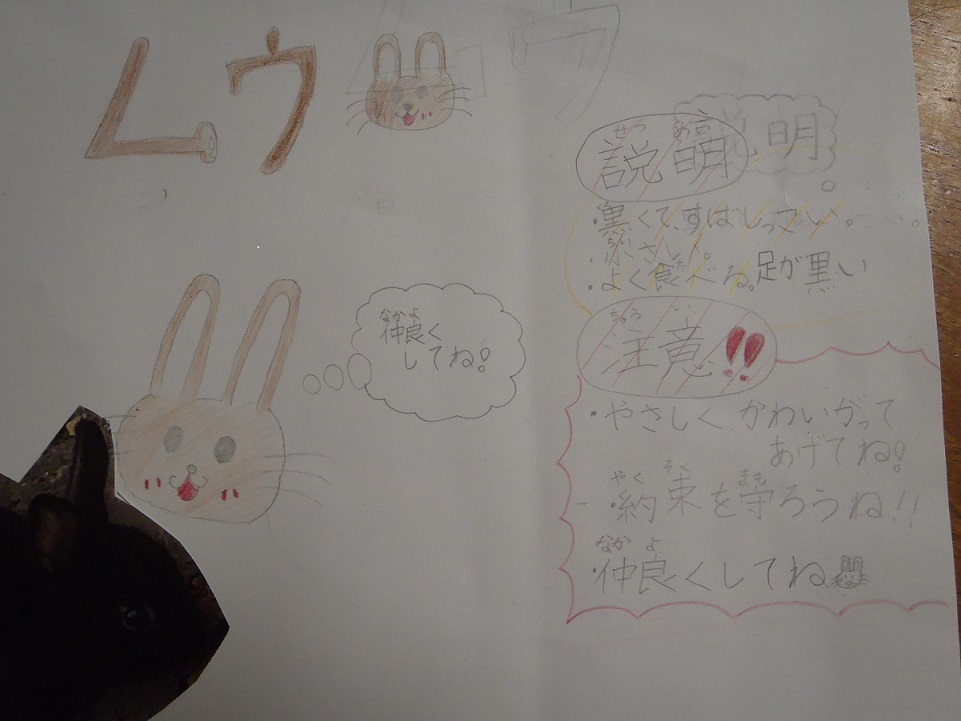 ムウ
仲良く
してね!
なかよ
説明
せつ めい
・黒くて、すばしっこい。
・小さい。
・よく食べる。足が黒い
注意!!
ちゅう い
・やさしく、かわいがって
あげてね!
・約束を守ろうね!!
やく そく まも
・仲良くしてね
なか よ